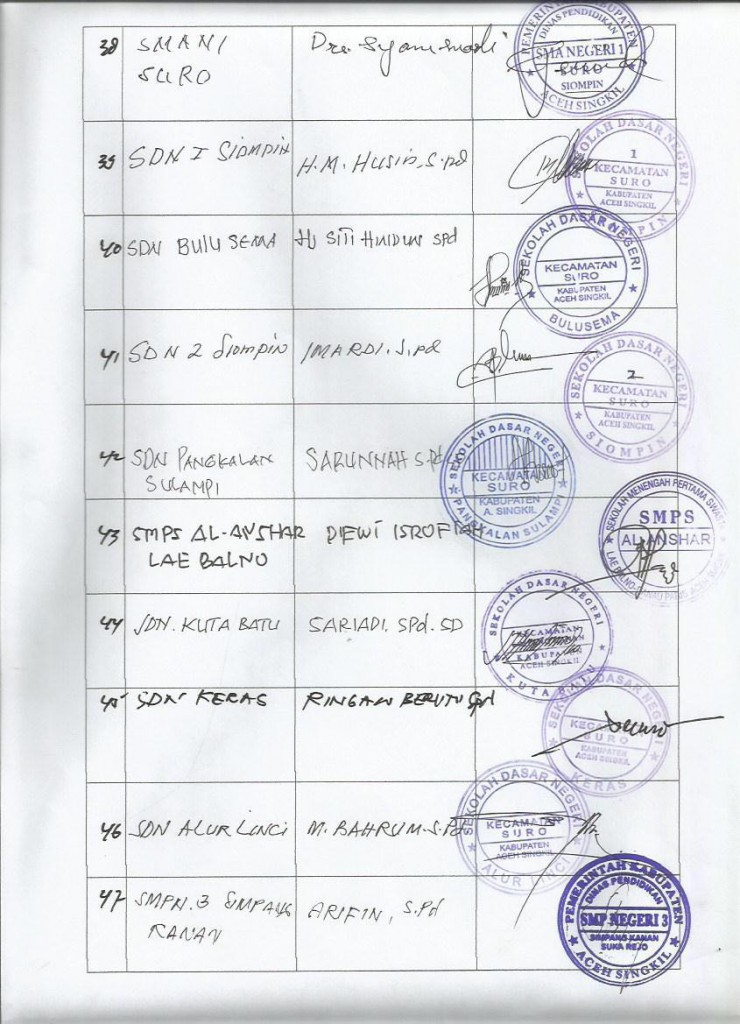 38 SMAN I Drs. Syamsuadi
SURO
PEMERINTAH KABUPATEN
DINAS PENDIDIKAN
SMA NEGERI 1
SURO
SIOMPIN
ACEH SINGKIL
39 SDN I Siompin H.M. Husin, S.pd
SEKOLAH DASAR NEGERI
1
KECAMATAN
SURO
KABUPATEN
ACEH SINGKIL
SIOMPIN
40 SDN BULU SEMA Hj SITI HINDUN SPd
SEKOLAH DASAR NEGERI
KECAMATAN
SURO
KABUPATEN
ACEH SINGKIL
BULUSEMA
41 SDN 2 Siompin IMARDI. S.pd
SEKOLAH DASAR NEGERI
2
KECAMATAN
SURO
KABUPATEN
ACEH SINGKIL
SIOMPIN
42 SDN PANGKALAN SARUNNAH S.Pd
SULAMPI
SEKOLAH DASAR NEGERI
KECAMATAN
SURO
KABUPATEN
A. SINGKIL
PANGKALAN SULAMPI
43 SMPS AL-ANSHAR DIEWI ISROFIAH
LAE BALNO
SEKOLAH MENENGAH PERTAMA SWASTA
SMPS
AL-ANSHAR
LAE BALNO
44 SDN. KUTA BATU SARIADI. SPd. SD
SEKOLAH DASAR NEGERI
KECAMATAN
KABUPATEN
ACEH SINGKIL
KUTA BATU
45 SDN KERAS RINGAN BERUTU Spd
SEKOLAH DASAR NEGERI
KECAMATAN
SURO
KABUPATEN
ACEH SINGKIL
KERAS
46 SDN ALUR LINCI M. BAHRUM. S.Pd
SEKOLAH DASAR NEGERI
KECAMATAN
SURO
KABUPATEN
ACEH SINGKIL
ALUR LINCI
47 SMPN. 3 SIMPANG ARIFIN, S.Pd
KANAN
PEMERINTAH KABUPATEN
DINAS PENDIDIKAN
SMP NEGERI 3
SIMPANG KANAN
SUKA REJO
ACEH SINGKIL